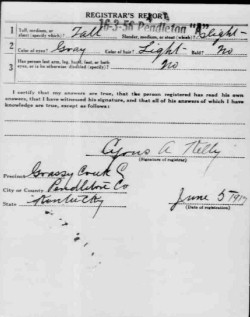 REGISTRAR'S REPORT
16-3-56 Pendleton "A"
1 Tall, medium, or short (specify which)? Tall Slender, medium, or stout (which)? Slight
2 Color of eyes? Gray Color of hair? Light Bald? No
3 Has person lost arm, leg, hand, foot, or both eyes, or is he otherwise disabled (specify)? No
I certify that my answers are true, that the person registered has read his own
answers, that I have witnessed his signature, and that all of his answers of which I have
knowledge are true, except as follows:
Cyrus A Kelly
(Signature of registrar)
Precinct Grassy Creek C
City or County Pendleton Co
State Kentucky
June 5 1917
(Date of registration)